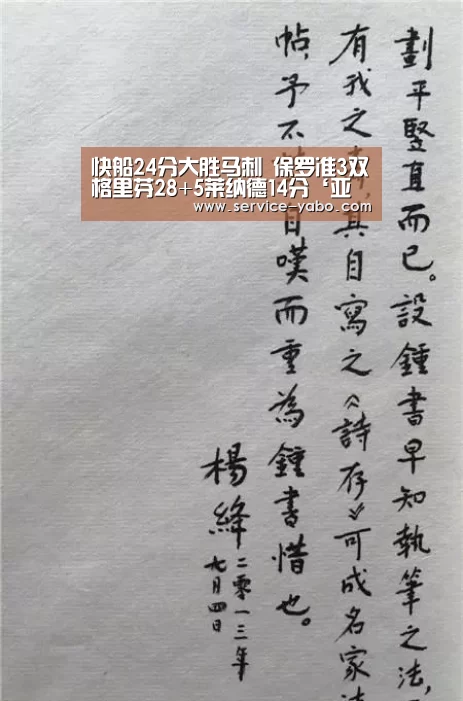 快船24分大胜马刺 保罗准3双
格里芬28+5莱纳德14分‘亚
www.service-yabo.com
劃平豎直而已。設鍾書早知執筆之法，
有我之 其自寫之《詩存》可成名家法
帖，予不 自嘆而重為鍾書惜也。
楊絳
二零一三年
九月四日